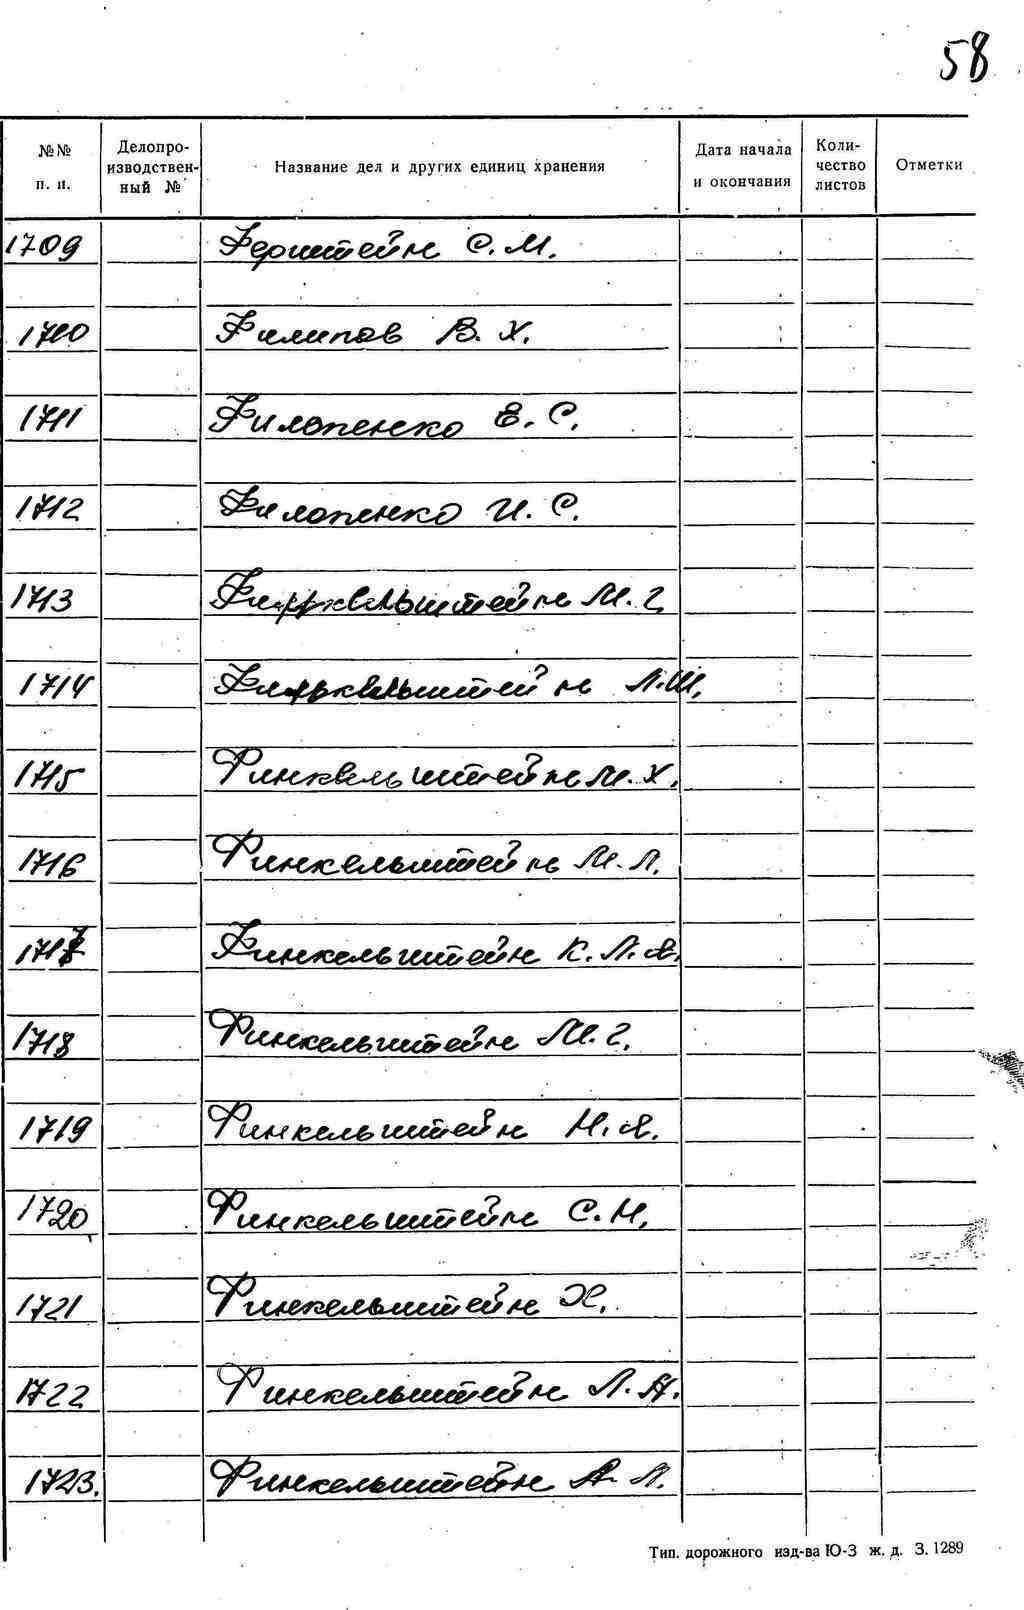 58
№№ п. п.
Делопроизводствен-ный №
Название дел и других единиц хранения
Дата начала и окончания
Коли-чество листов
Отметки
1709 Ферштейн С. М.
1710 Филипов В. Х.
1711 Филопенко Е. С.
1712 Филопенко И. С.
1713 М. Г.
1714 Л. Ш.
1715 Финкельштейн М. Х.
1716 Финкельштейн М. Л.
1717 Финкельштейн К. Л.
1718 Финкельштейн М. Г.
1719 Финкельштейн Н. Я.
1720 Финкельштейн С. Н.
1721 Финкельштейн Х.
1722 Финкельштейн Л. А.
1723. Финкельштейн А. Л.
Тип. дорожного изд-ва Ю-З ж. д. З. 1289